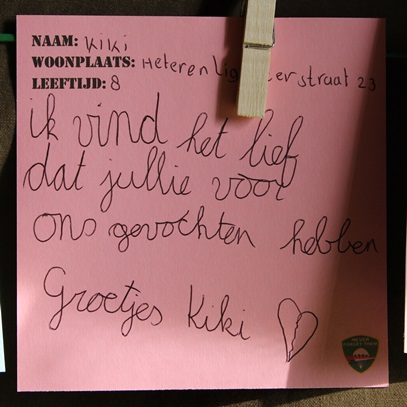 NAAM: Kiki
WOONPLAATS: Heteren straat 23
LEEFTIJD: 8
ik vind het lief
dat jullie voor
ons gevochten hebben
Groetjes Kiki